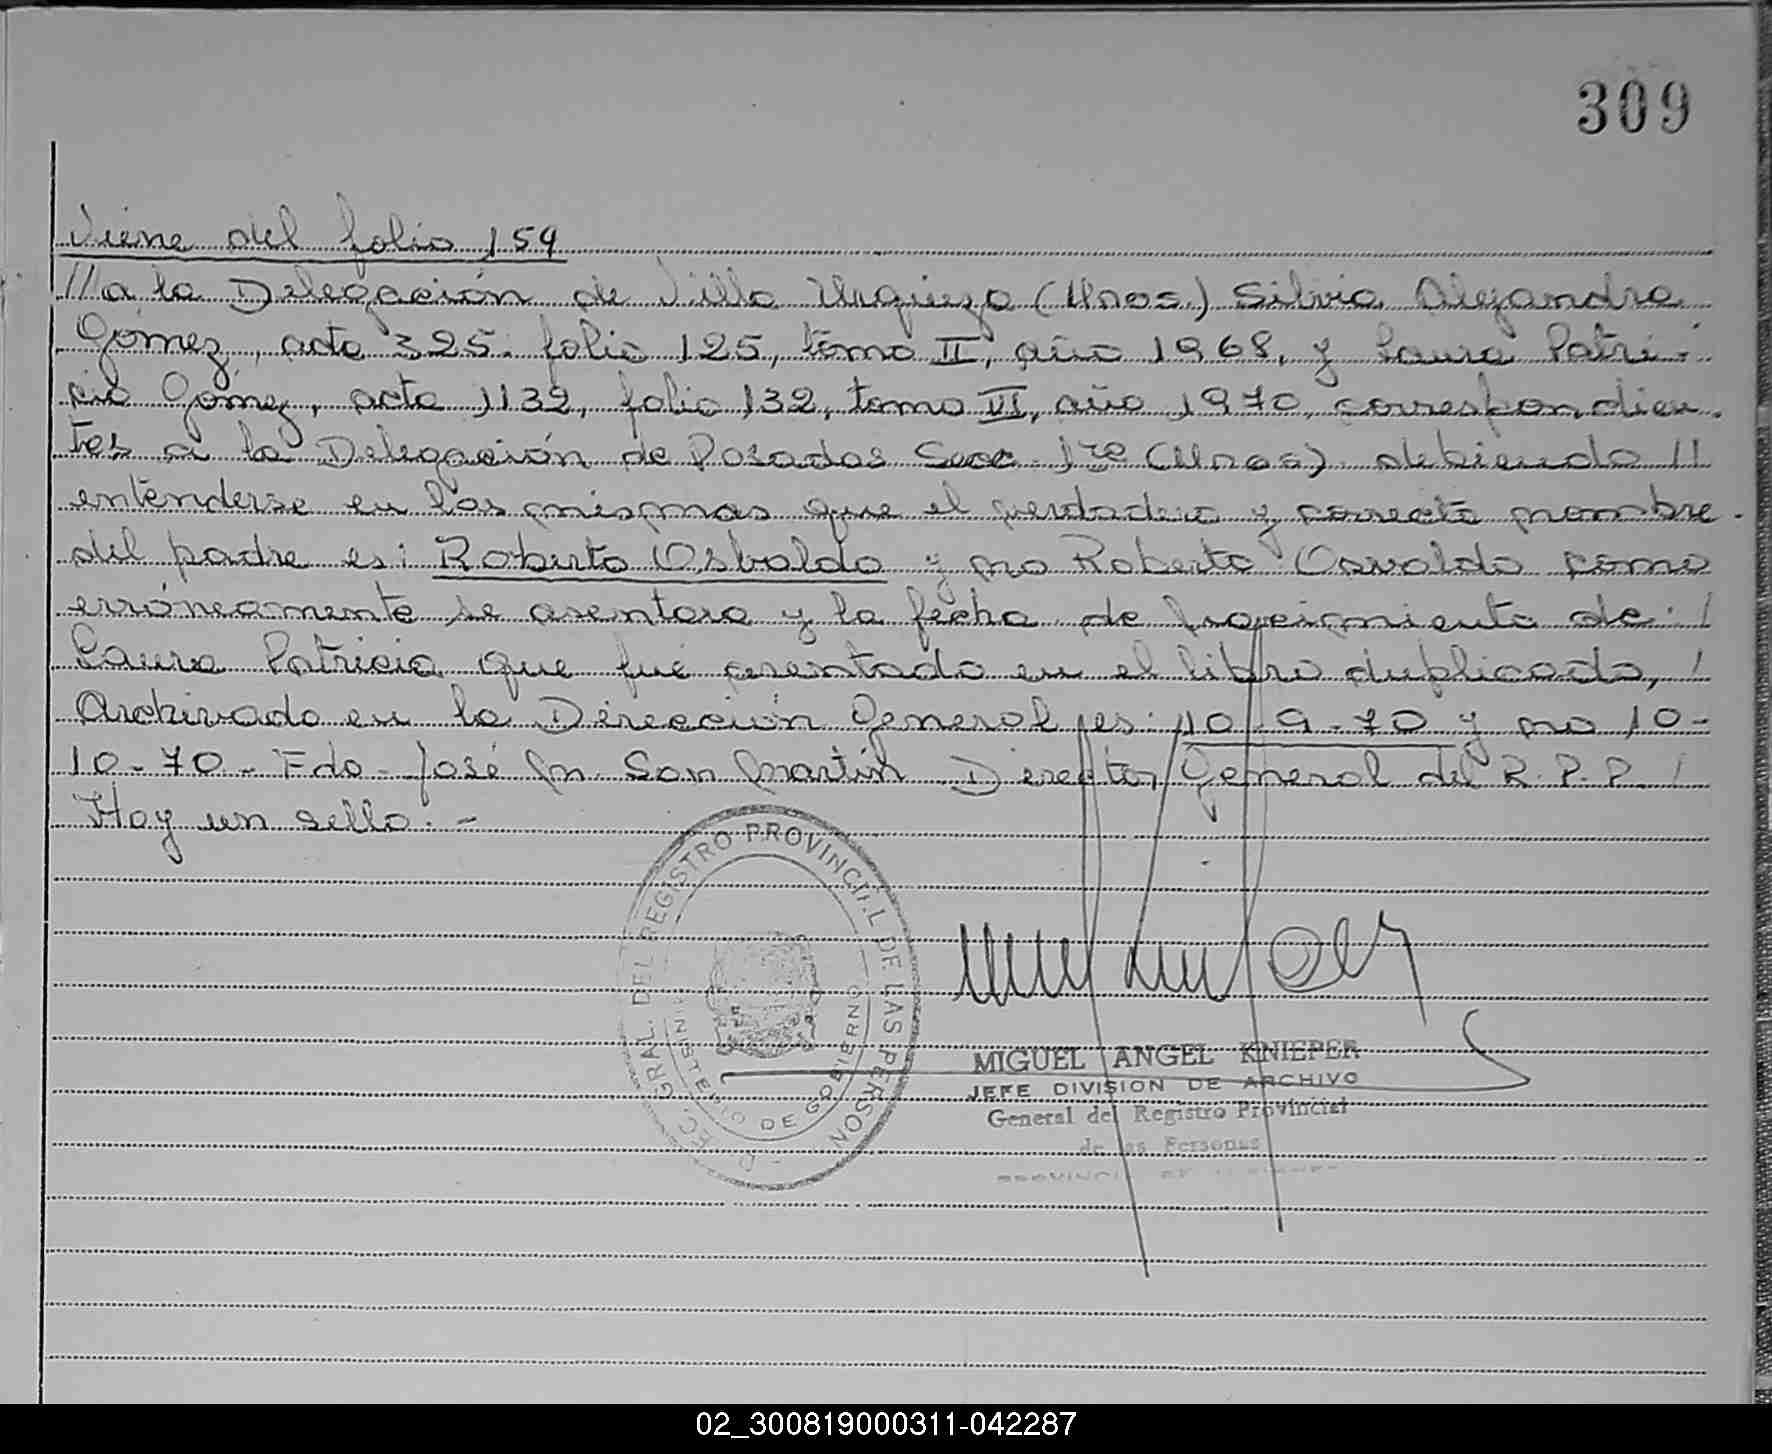 309
Viene del folio 159
//a la Delegación de Villa Urquiza (Mnes.) Silvia Alejandra
Gómez, acta 325. folio 125, tomo II, año 1968, y Laura Patri-
cia Gómez, acta 1132, folio 132, tomo VI, año 1970, correspondien-
tes a la Delegación de Posadas Secc. 1ra (Mnes) debiendo //
entenderse en las mismas que el verdadero y correcto nombre
del padre es: Roberto Osbaldo y no Roberto Osvaldo como
erróneamente se asentara y la fecha de nacimiento de /
Laura Patricia que fué asentado en el libro duplicado, /
Archivado en la Dirección General es: 10-9-70 y no 10-
10-70- Fdo- José M. San Martín Director General del R.P.P. /
Hay un sello.-
DIREC. GRAL. DEL REGISTRO PROVINCIAL DE LAS PERSON
MINISTERIO DE GOBIERNO
MIGUEL ANGEL KNIEPER
JEFE DIVISION DE ARCHIVO
General del Registro Provincial
de las Personas
PROVINCIA DE MISIONES
02_300819000311-042287